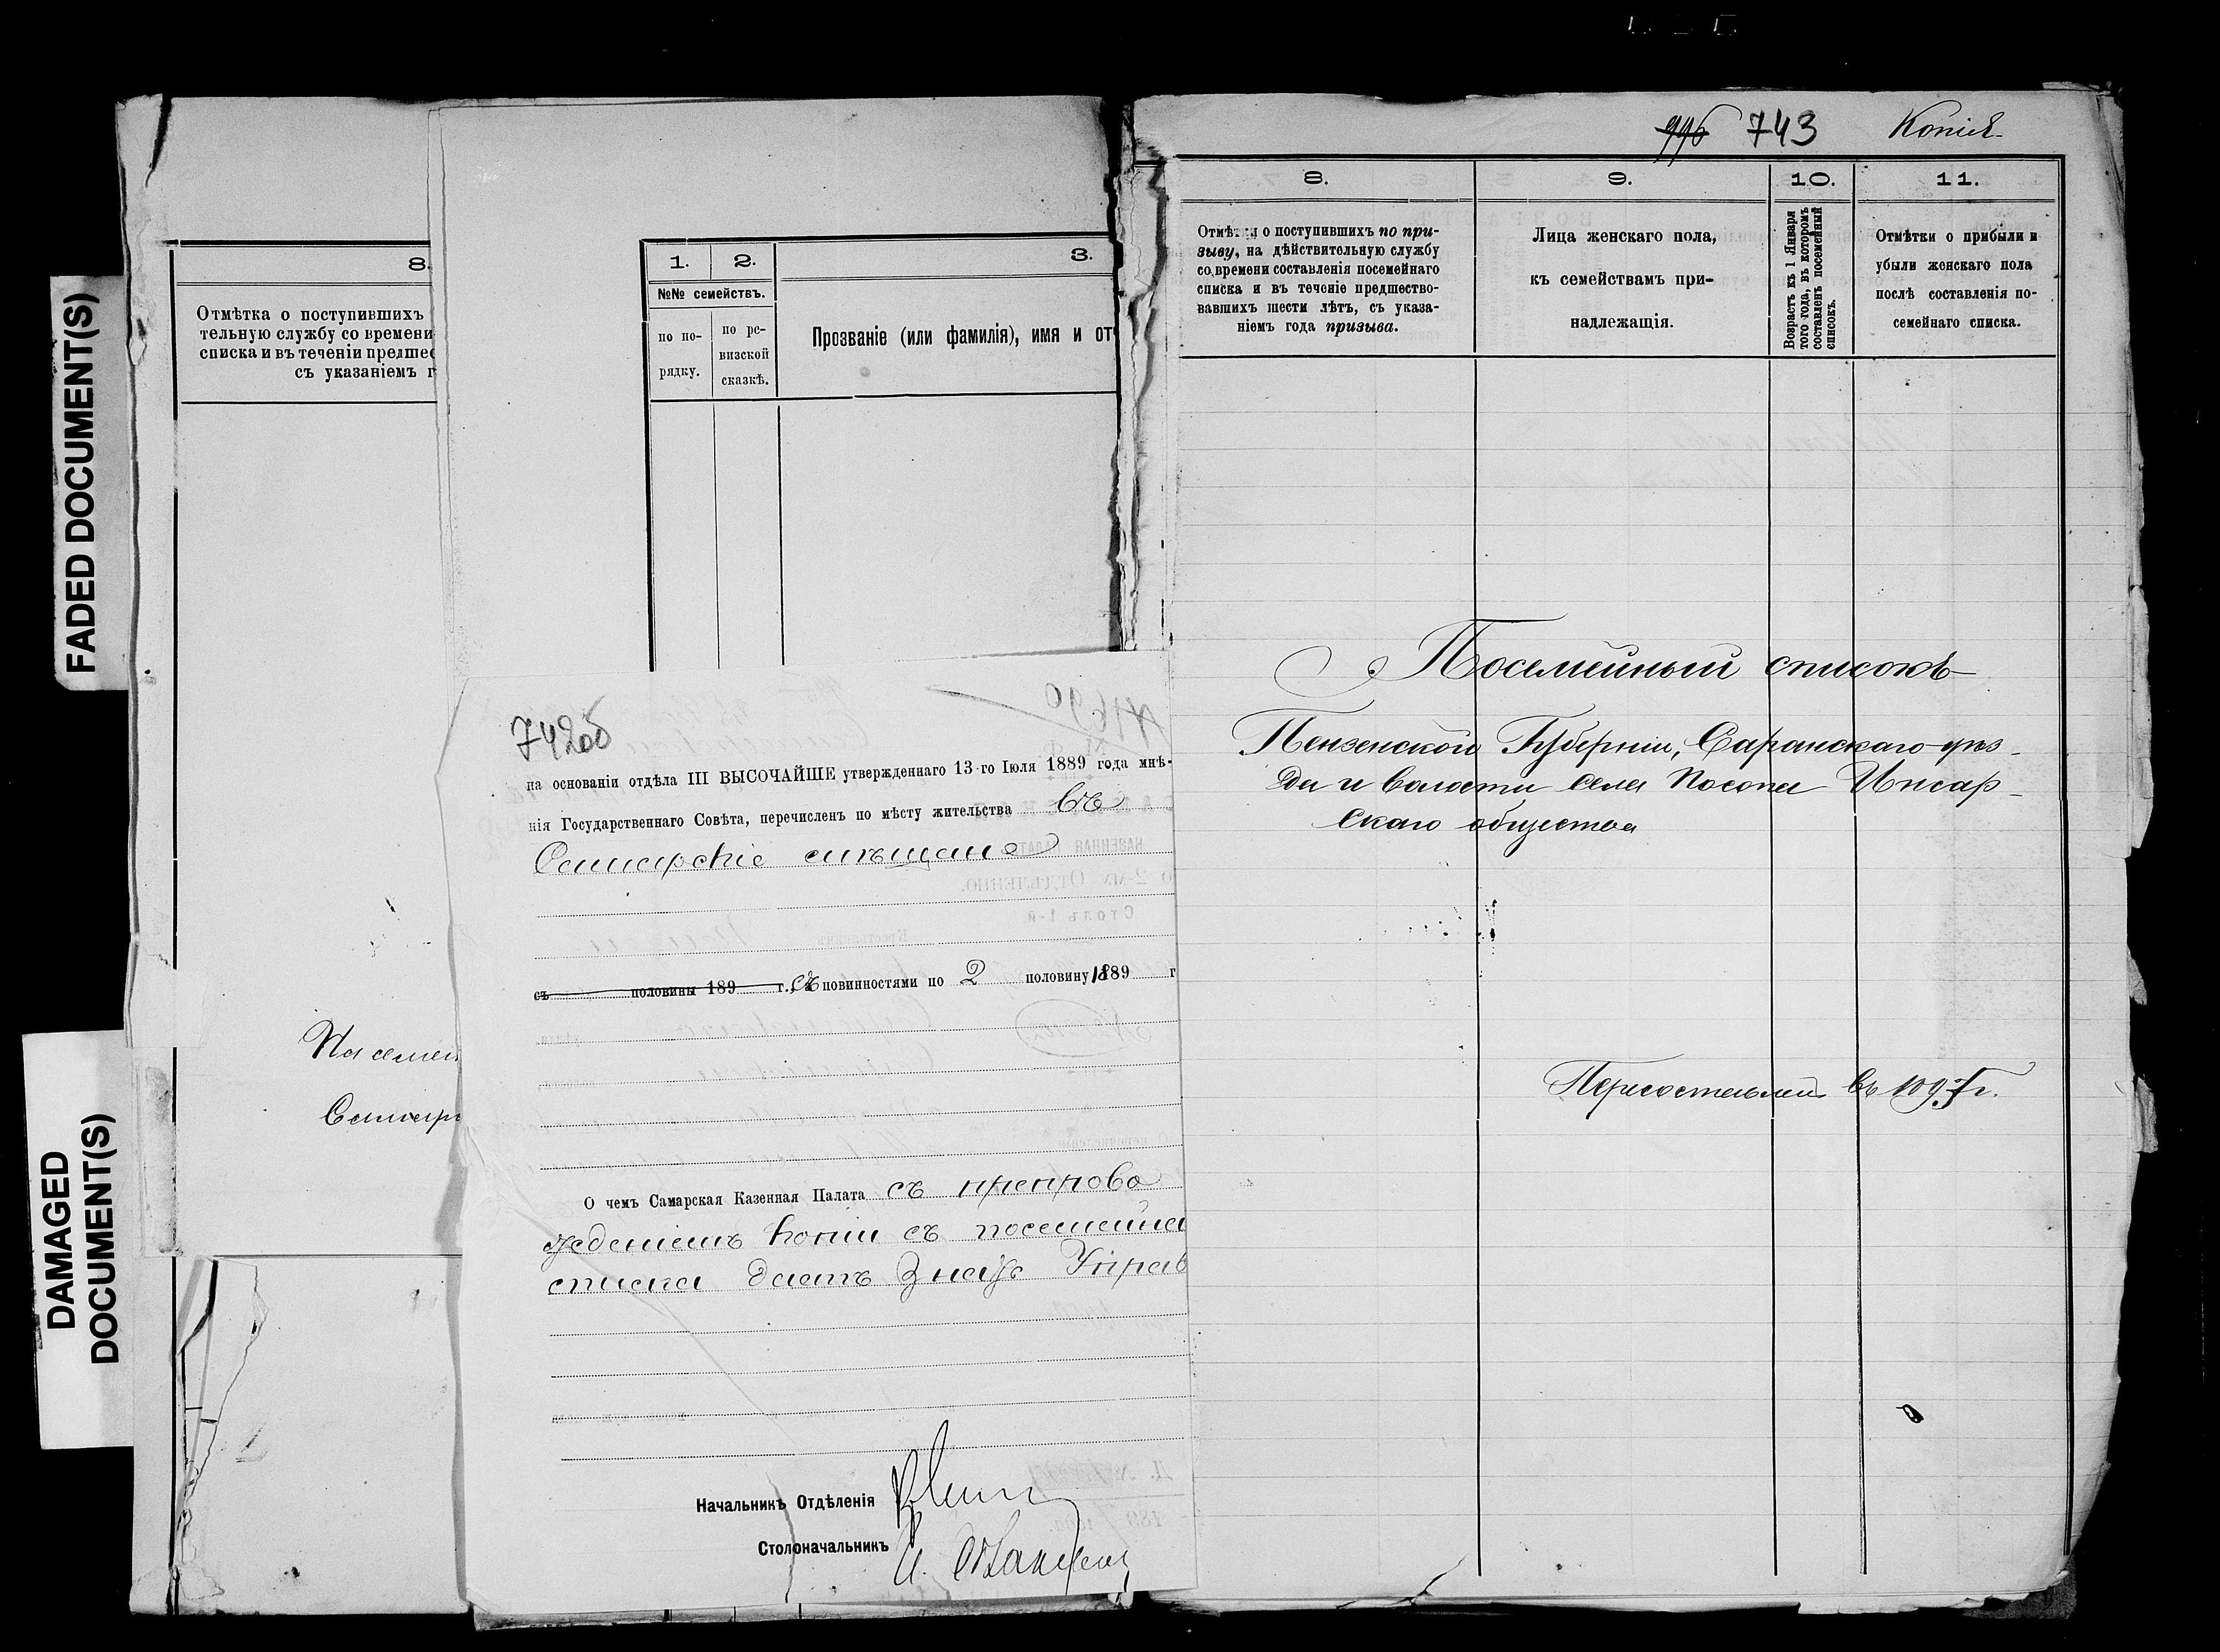 FADED DOCUMENT(S)
DAMAGED
DOCUMENT(S)
8.
Отмѣтка о поступившихъ
тельную службу со времени
списка и въ теченіи предшес
съ указаніемъ г
На семей
Самарс
1. 2. 3.
№№ семействъ.
по по-
рядку.
по ре-
визской
сказкѣ.
Прозваніе (или фамилія), имя и от
742об
на основаніи отдѣла III ВЫСОЧАЙШЕ утвержденнаго 13-го Іюля 1889 года мнѣ-
нія Государственнаго Совѣта, перечисленъ по мѣсту жительства въ
Самарскіе мѣщане
съ половины 189 г., съ повинностями по 2 половину 1889 г
О чемъ Самарская Казенная Палата съ препрово
жденіемъ копіи съ посемейна
списка даетъ знать Управ
Начальникъ Отдѣленія
Столоначальникъ
996 743 Копія
8. 9. 10. 11.
Отмѣтка о поступившихъ по при-
зыву, на дѣйствительную службу
со времени составленія посемейнаго
списка и въ теченіе предшество-
вавшихъ шести лѣтъ, съ указа-
ніемъ года призыва.
Лица женскаго пола,
къ семействамъ при-
надлежащія.
Возрастъ къ 1 Января
того года, въ которомъ
составленъ посемейный
списокъ.
Отмѣтки о прибыли и
убыли женскаго пола
послѣ составленія по-
семейнаго списка.
Посемейный списокъ
Пензенской Губерніи, Саранскаго уѣз-
да и волости села Посопа Инсар-
скаго общества
въ 1897 г.